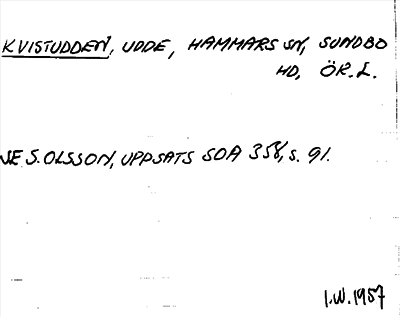 KVISTUDDEN, UDDE, HAMMARS SN, SUNDBO
HD, ÖR.L.
SE S. OLSSON, UPPSATS SOA 358, S. 91.
I.W. 1957